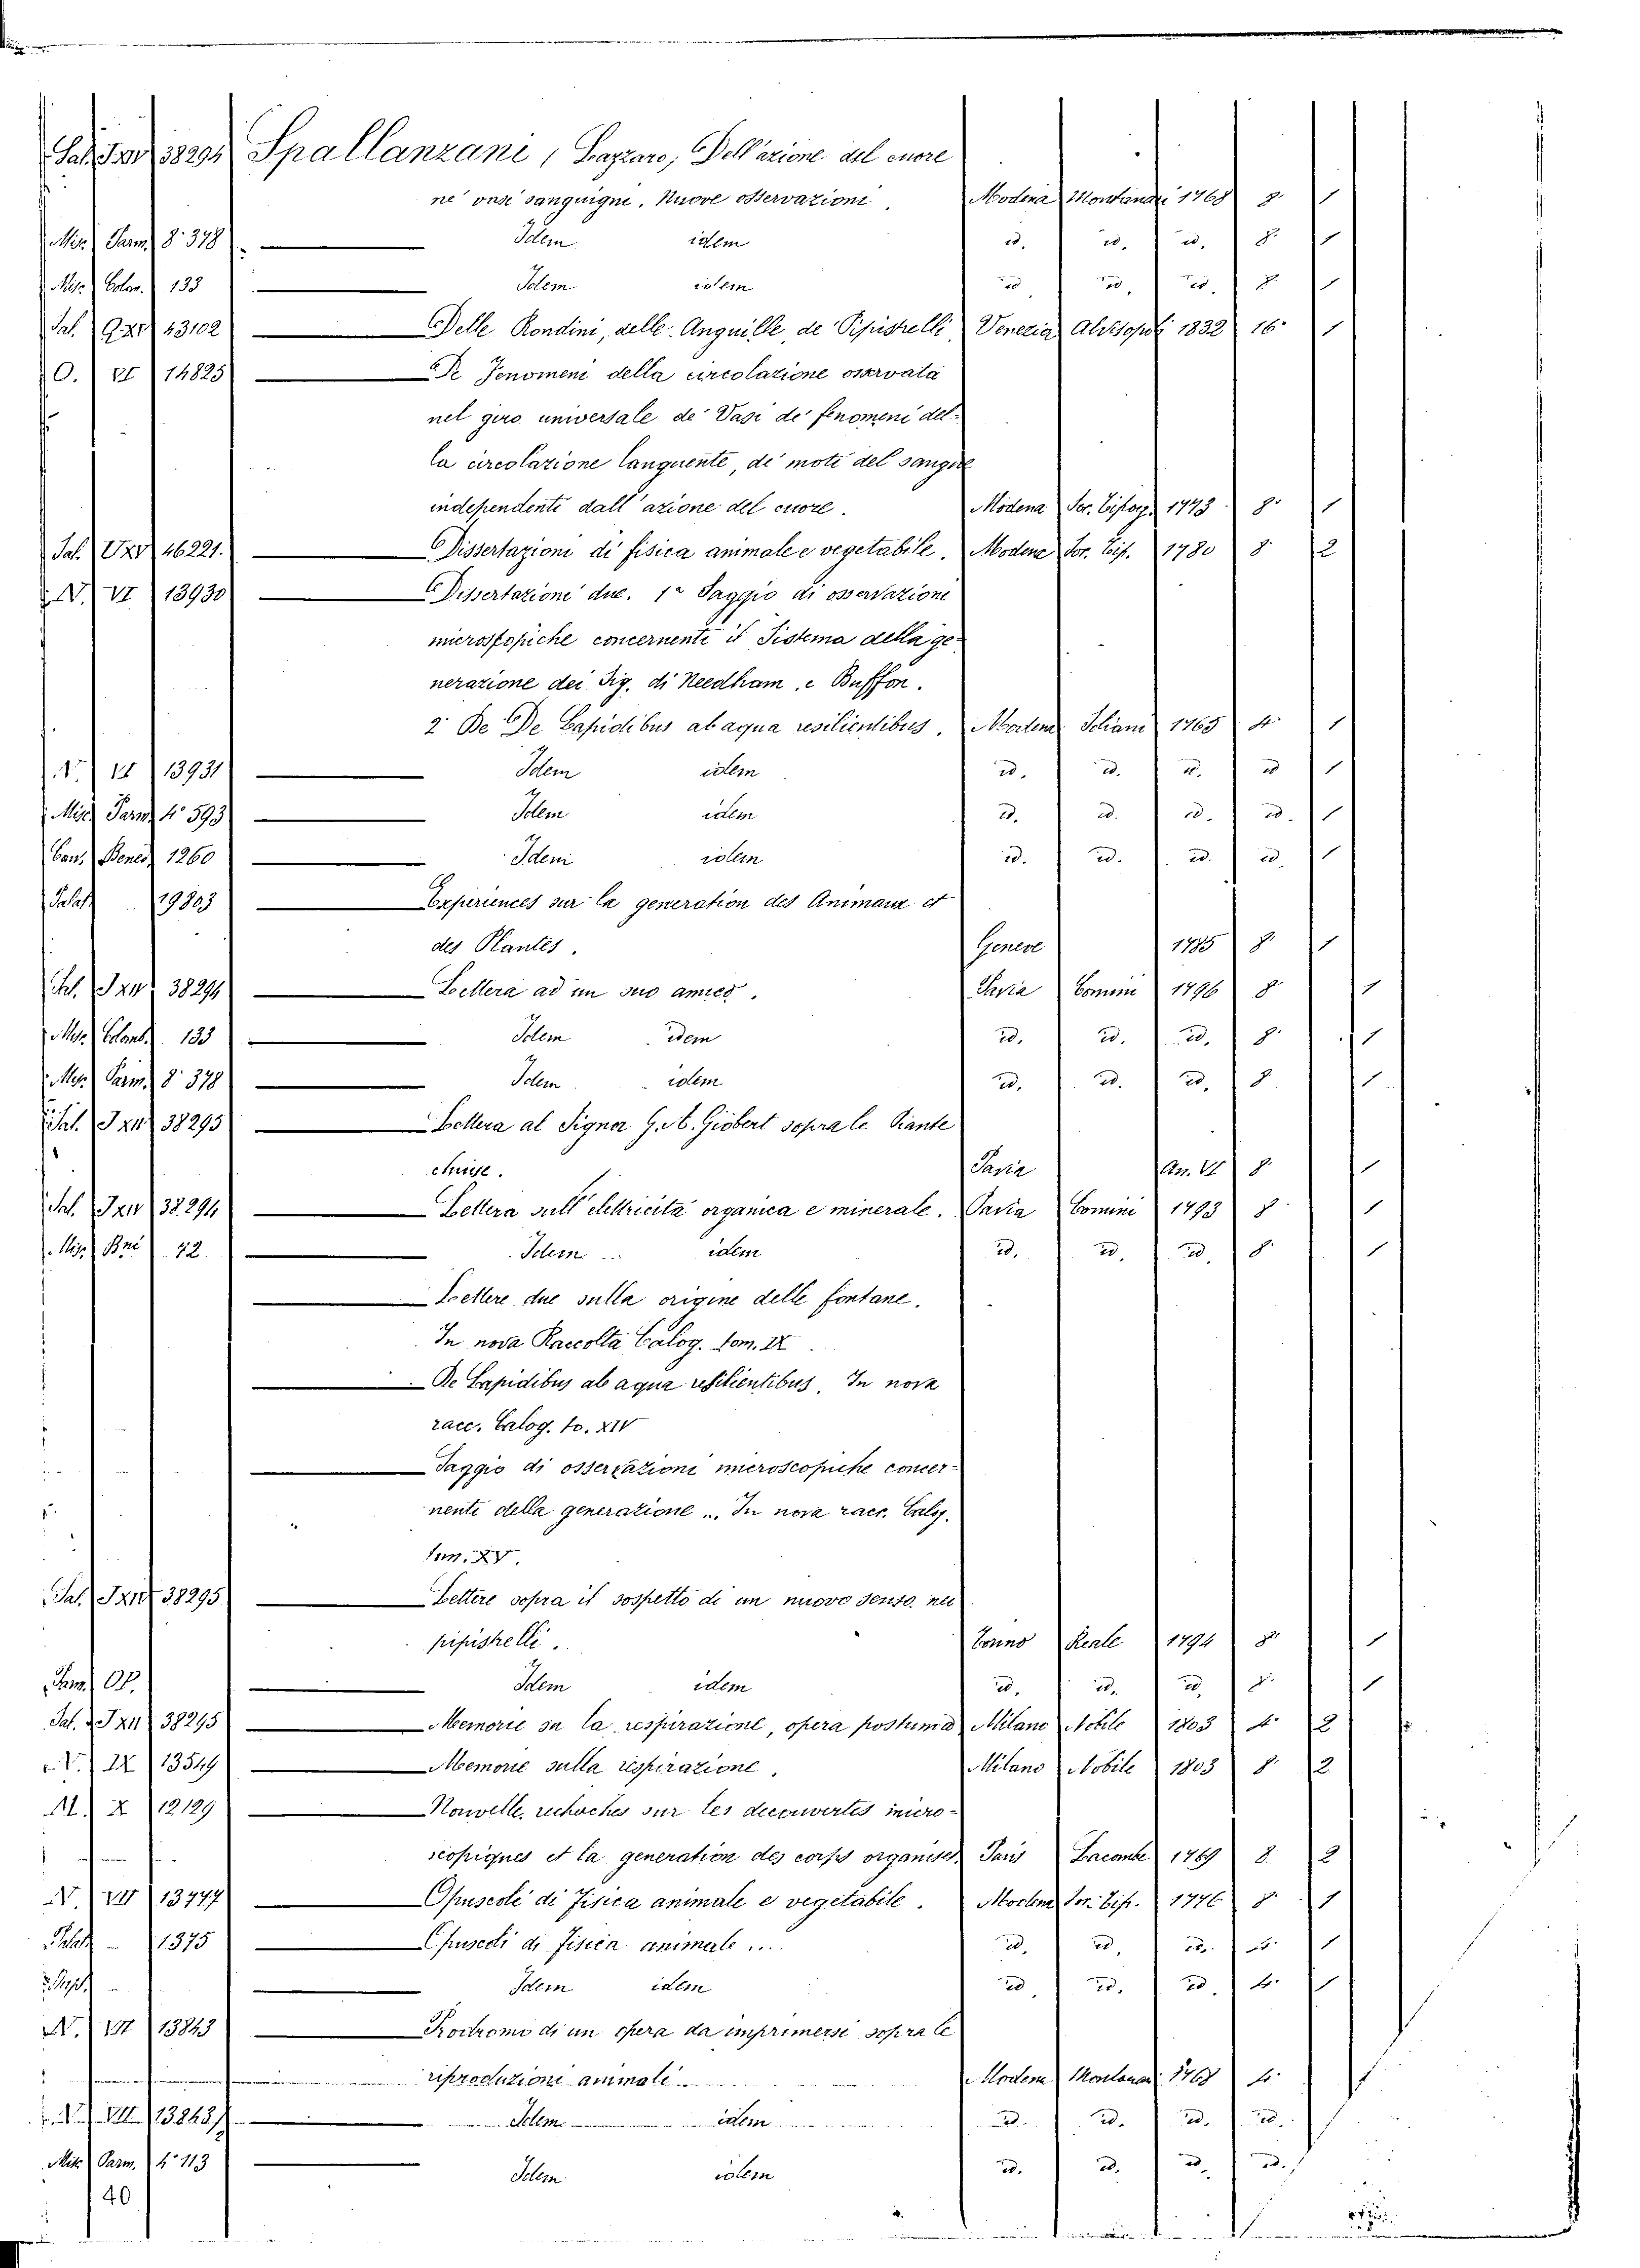 Sal. I XIV 38294 Spallanzani, Lazzaro, Dell'azione del cuore
ne' vasi sanguigni. Nuove osservazioni. Modena Montanari 1768 8° 1
Misc. Parm. 8° 378 Idem idem id. id. id. 8° 1
Misc. Colom. 133 Idem idem id id. id. 8° 1
Sal. 43102 Delle Rondini, delle Anguille, de Pipistrelli Venezia Alvisopoli 1832 16° 1
O. VI 14825 De Fenomeni della circolazione osservata
nel giro universale de' Vasi de' fenomeni del-
la circolazione languente, de' moti del sangue
independente dall'azione del cuore. Modena Soc. Tipog. 1773 8° 1
Sal. 46221. Dissertazioni di fisica animale e vegetabile. Modena Soc. Tip. 1780 8° 2
N. VI 13930 Dissertazioni due. 1ª Saggio di osservazioni
microscopiche concernenti il Sistema della ge-
nerazione dei Sig. di Needham, e Buffon.
2ª De De Lapidibus ab aqua resilientibus. Modena Soliani 1765 4° 1
13931 Idem idem id. id. id. id 1
Misc. Parm. 4° 593 Idem idem id. id. id. id. 1
Can. Bened. 1260 Idem idem id. id. id. id. 1
Palat. 19803 Experiences sur la generation des Animaux et
des Plantes. Geneve 1785 8° 1
Sal. I XIV 38294 Lettera ad un suo amico. Pavia Comini 1796 8° 1
Misc. Colomb. 133 Idem idem id. id. id. 8° 1
Misc. Parm. 8° 378 Idem idem id. id. id. 8° 1
Sal. I XIV 38295 Lettera al Signor G. A. Giobert sopra le Piante
chiuse. Pavia An. VI 8° 1
Sal. I XIV 38294 Lettera sull'elettricità organica e minerale. Pavia Comini 1793 8° 1
Misc. 72. Idem idem id. id. id. 8° 1
Lettere due sulla origine delle fontane.
In nova Raccolta Calog. tom. IX.
De Lapidibus ab aqua resilientibus. In nova
racc. Calog. to. XIV
Saggio di osservazioni microscopiche concer-
nenti della generazione... In nova racc. Calog.
tom. XV.
Sal. I XIV 38295. Lettere sopra il sospetto di un nuovo senso nei
pipistrelli. Torino Reale 1794 8° 1
Op. Idem idem id. id. id. 8° 1
Sal. I XIV 38295 Memorie su la respirazione, opera postuma Milano Nobile 1803 4° 2
13549 Memorie sulla respirazione. Milano Nobile 1803 8° 2
M. X 12129 Nouvelle recherches sur les decouvertes micro-
scopiques et la generation des corps organises. Paris Lacombe 1769 8. 2
N. VII 13777 Opuscoli di Fisica animale e vegetabile. Modena Soc. Tip. 1776 8° 1
Palat. - 1375 Opuscoli di fisica animale.... id. id. id. 1
Idem idem id. id. id. 4° 1
N. VII 13843 Prodromo di un opera da imprimersi sopra le
riproduzioni animali Modena Montanari 1768 4°
N. VII 13843 Idem idem id. id. id. id.
Misc. Parm. 4° 113 Idem idem id. id. id. id.
40